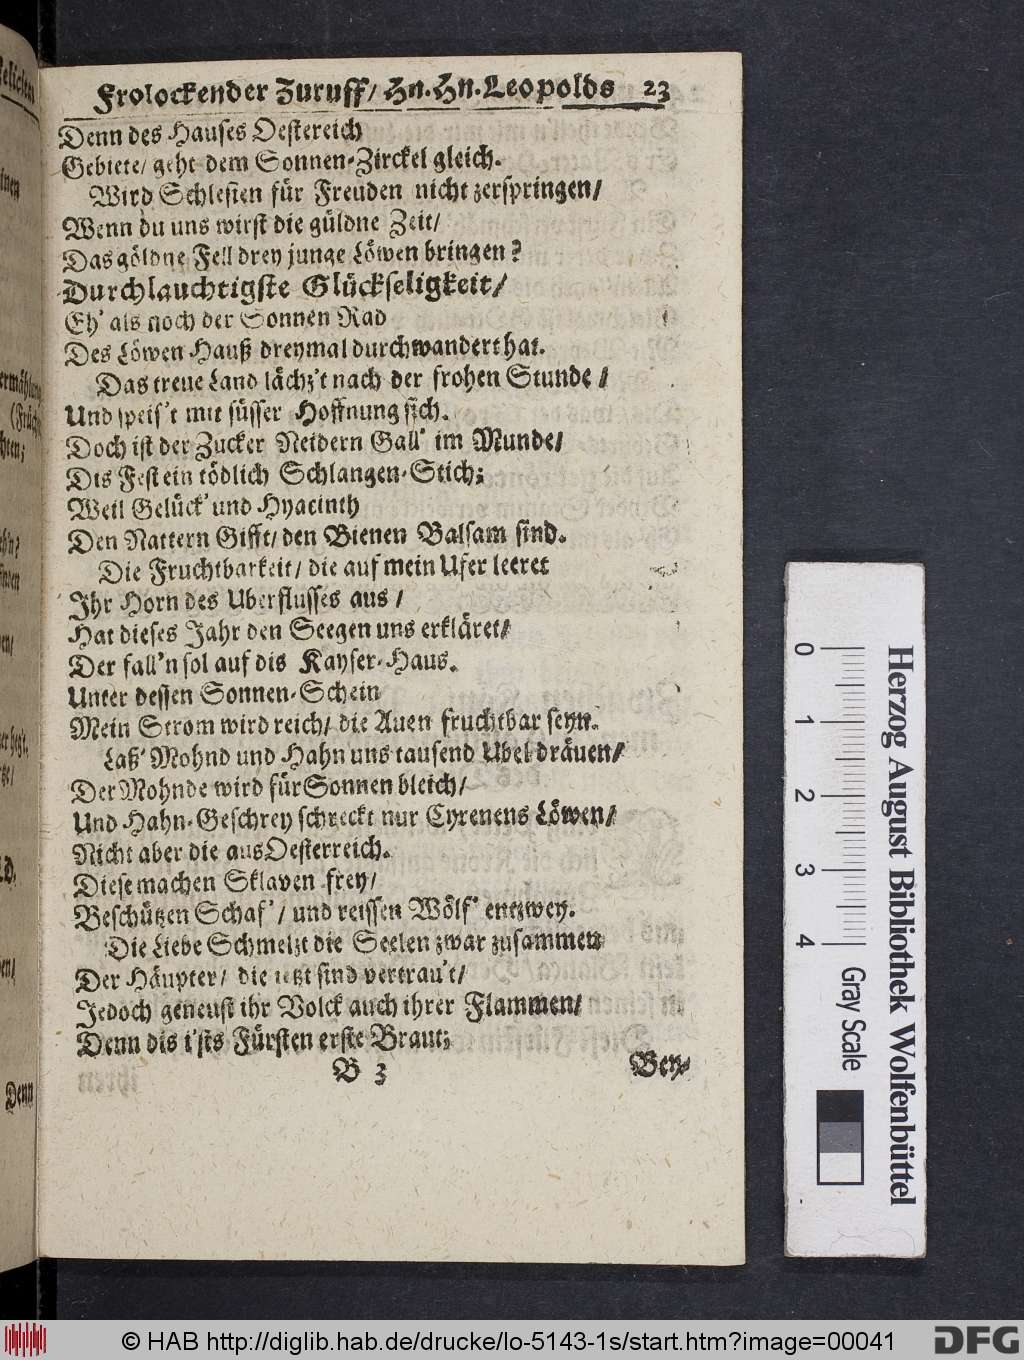 Frolockender Zuruff/ Hn. Hn. Leopolds 23
Denn des Hauses Oestereich
Gebiete/ geht dem Sonnen-Zirckel gleich.
Wird Schlesien für Freuden nicht zerspringen/
Wenn du uns wirst die güldne Zeit/
Das göldne Fell drey junge Löwen bringen?
Durchlauchtigste Glückseligkeit/
Eh' als noch der Sonnen Rad
Des Löwen Hauß dreymal durchwandert hat.
Das treue Land lächz't nach der frohen Stunde/
Und speis't mit süsser Hoffnung sich.
Doch ist der Zucker Neidern Gall' im Munde/
Dis Fest ein tödlich Schlangen-Stich;
Weil Gelück' und Hyacinth
Den Nattern Gifft/ den Bienen Balsam sind.
Die Fruchtbarkeit/ die auf mein Ufer leeret
Ihr Horn des Uberflusses aus/
Hat dieses Jahr den Seegen uns erkläret/
Der fall'n sol auf dis Kayser-Haus.
Unter dessen Sonnen-Schein
Mein Strom wird reich/ die Auen fruchtbar seyn.
Laß' Mohnd und Hahn uns tausend Ubel dräuen/
Der Mohnde wird für Sonnen bleich/
Und Hahn-Geschrey schreckt nur Cyrenens Löwen/
Nicht aber die aus Oesterreich.
Diese machen Sklaven frey/
Beschützen Schaf'/ und reissen Wölf' entzwey.
Die Liebe Schmelzt die Seelen zwar zusammen
Der Häupter/ die itzt sind vertrau't/
Jedoch geneust ihr Volck auch ihrer Flammen/
Denn dis i'sts Fürsten erste Braut;
B 3 Bey-
Denn
0 1 2 3 4 Gray Scale
Herzog August Bibliothek Wolfenbüttel
© HAB http://diglib.hab.de/drucke/lo-5143-1s/start.htm?image=00041
DFG